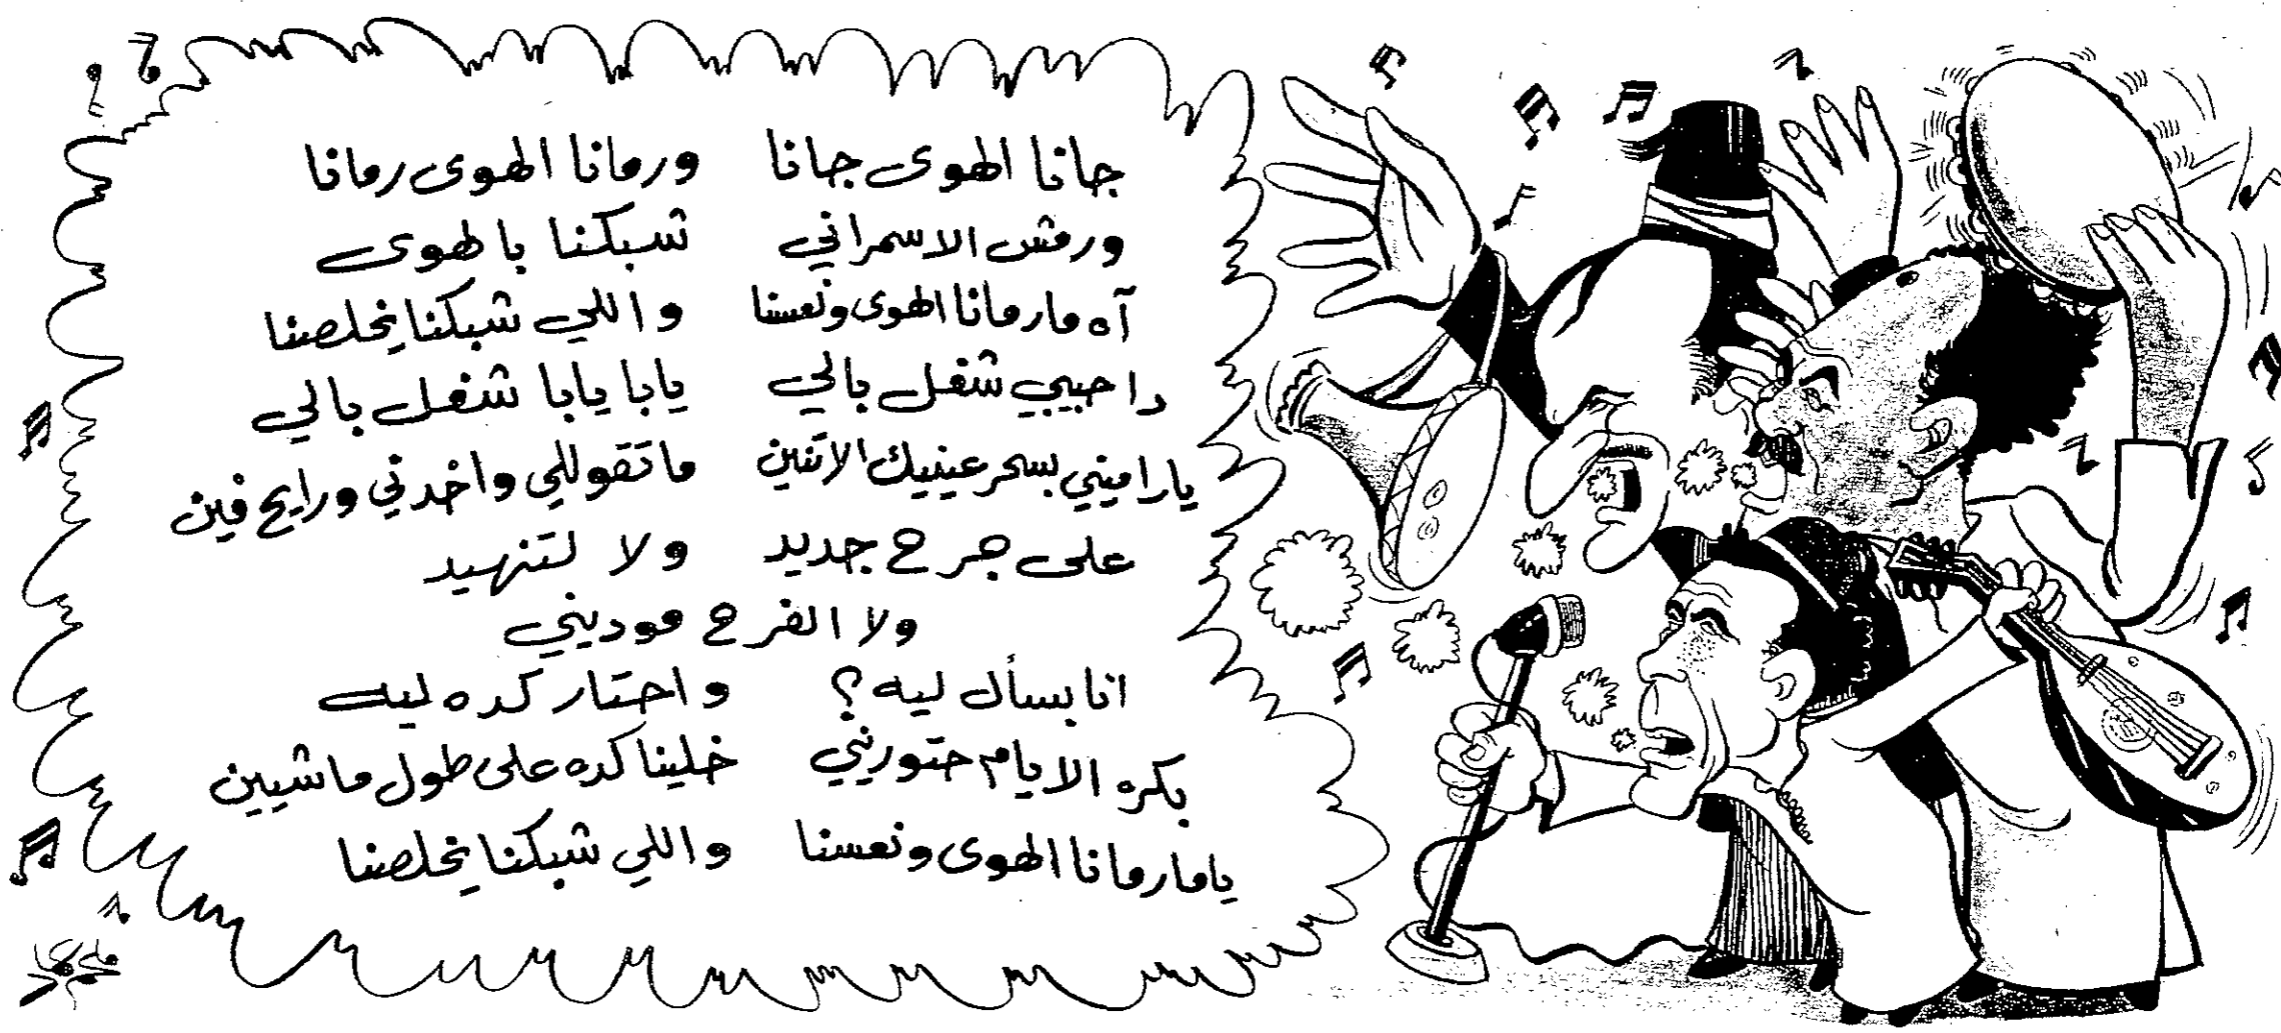 جانا الهوى جانا ورمانا الهوى رمانا
ورمش الاسمراني شبكنا بالهوى
آه مارمانا الهوى ونعسنا واللي شبكنا يخلصنا
دا حبيبي شغل بالي يابا يابا شغل بالي
ياراميني بسحر عينيك الاتنين ماتقوللي واخدني ورايح فين
على جرح جديد ولا لتنهيد
ولا الفرح موديني
انا بسأل ليه؟ واحتار كده ليه
بكره الايام حتوريني خلينا كده على طول ماشيين
ياما رمانا الهوى ونعسنا واللي شبكنا يخلصنا